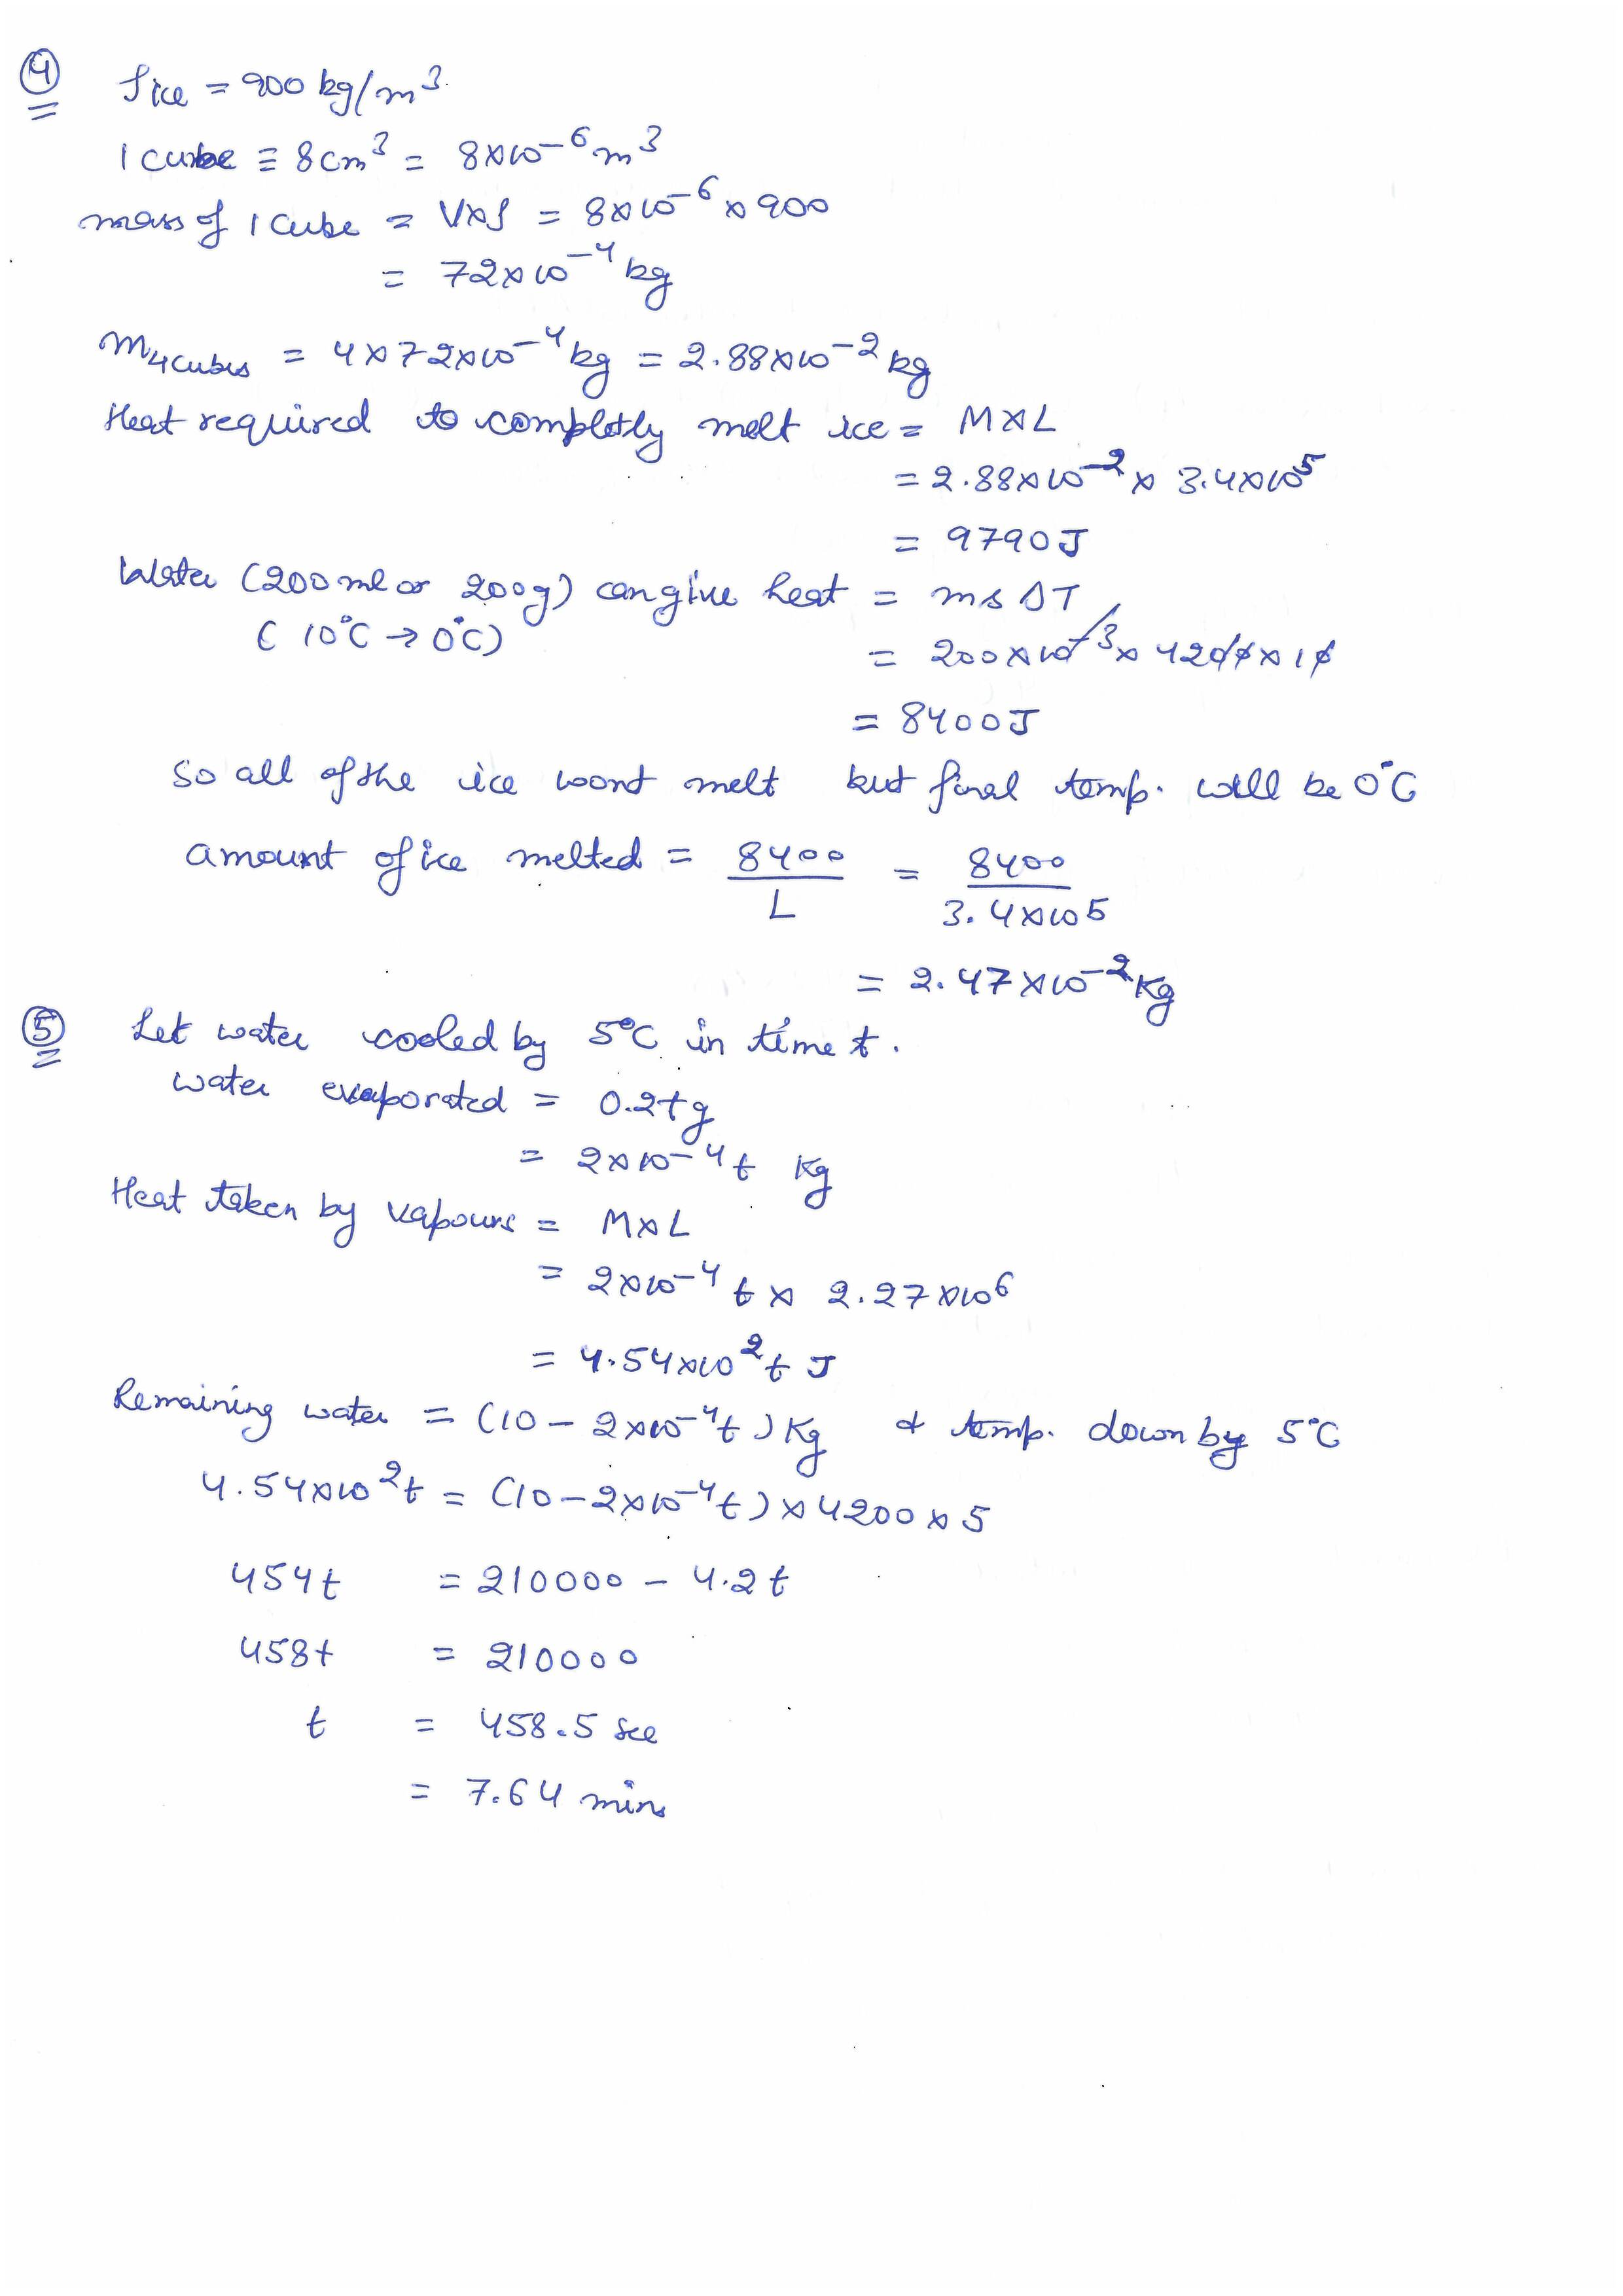 ④ ρice = 900 kg/m³
1 cube ≡ 8cm³ = 8×10⁻⁶ m³
mass of 1 cube = V×ρ = 8×10⁻⁶ × 900
= 72×10⁻⁴ kg
M₄cubes = 4×72×10⁻⁴ kg = 2.88×10⁻² kg
Heat required to completly melt ice = M×L
= 2.88×10⁻² × 3.4×10⁵
= 9790 J
Water (200 ml or 200g) can give heat = ms ΔT
(10°C → 0°C)
= 200×10⁻³ × 4200 × 10
= 8400 J
So all of the ice wont melt but final temp. will be 0°C
amount of ice melted = 8400/L = 8400/3.4×10⁵
= 2.47×10⁻² Kg
⑤ Let water cooled by 5°C in time t.
water evaporated = 0.2t g
= 2×10⁻⁴ t Kg
Heat taken by vapours = M×L
= 2×10⁻⁴ t × 2.27×10⁶
= 4.54×10² t J
Remaining water = (10 – 2×10⁻⁴t) Kg & temp. down by 5°C
4.54×10² t = (10 – 2×10⁻⁴t) × 4200 × 5
454t = 210000 – 4.2t
458t = 210000
t = 458.5 sec
= 7.64 mins